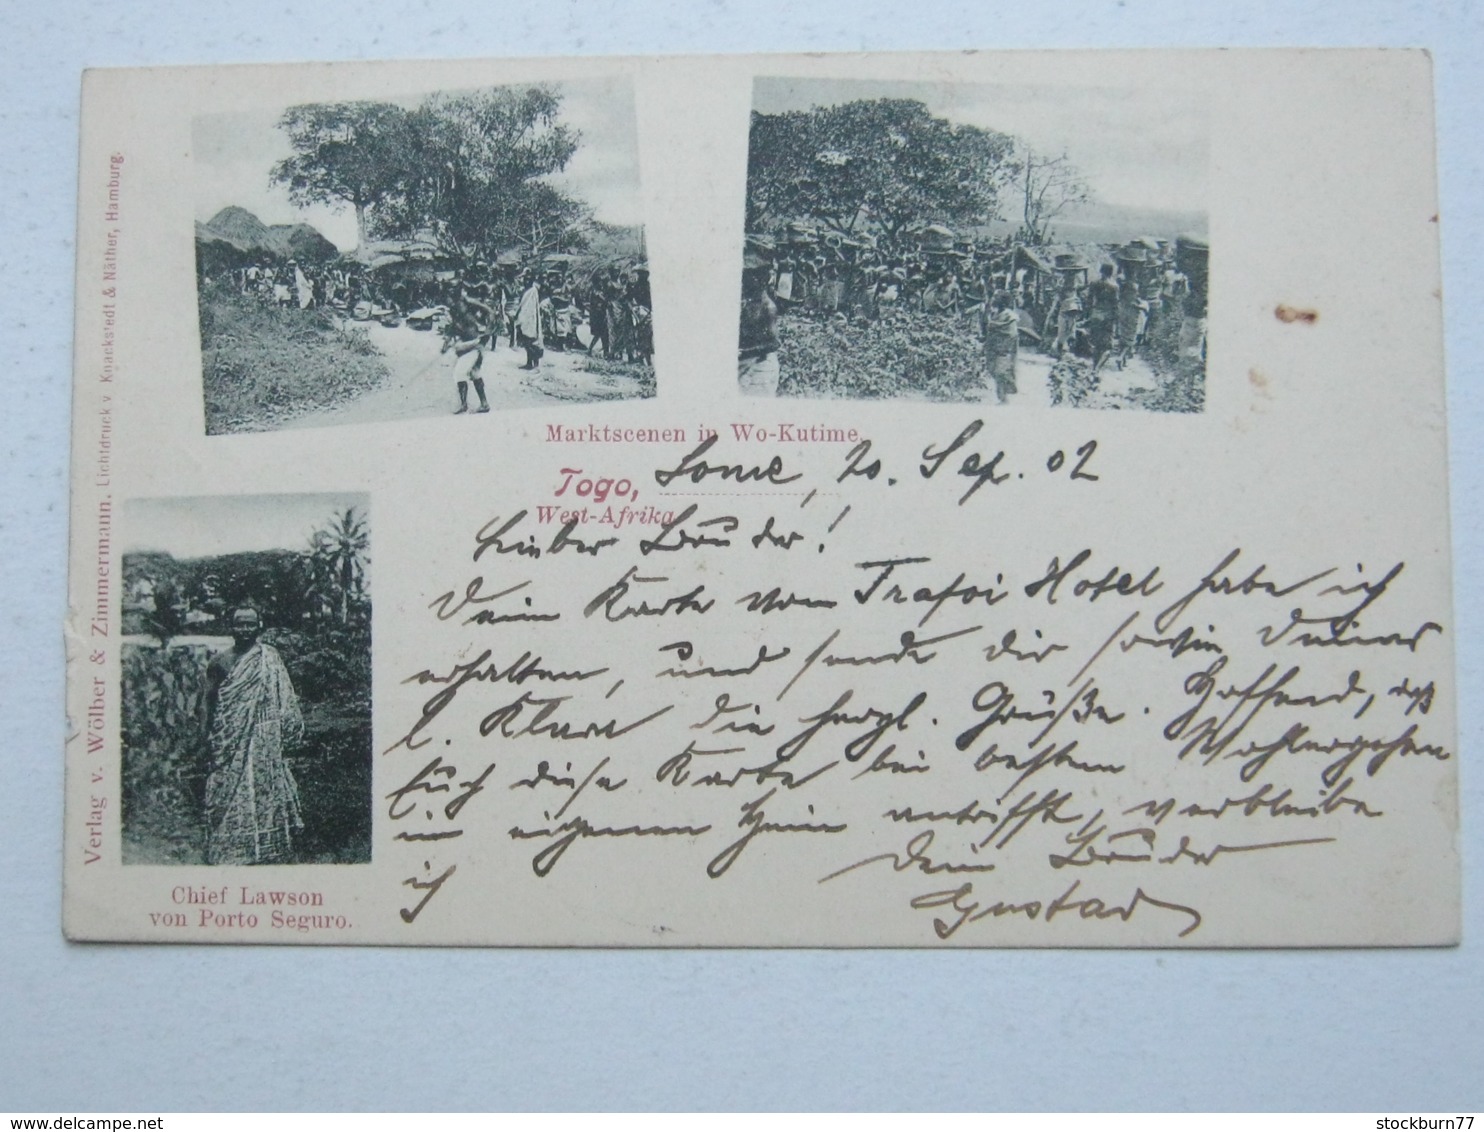 Marktscenen in Wo-Kutime.
Togo, Lome, 20. Sep. 02
West-Afrika
Lieber Bruder!
Dein Karte vom Trafoi Hotel habe ich
erhalten, und sende dir sowie Deiner
l. Klara die herzl. Grüße. Hoffend, daß
Euch diese Karte bei bestem Wohlergehen
im eigenen Heim antrifft, verbleibe
ich Dein Bruder
Gustav
Chief Lawson
von Porto Seguro.
Verlag v. Wölber & Zimmermann. Lichtdruck v. Knackstedt & Näther, Hamburg.
stockburn77